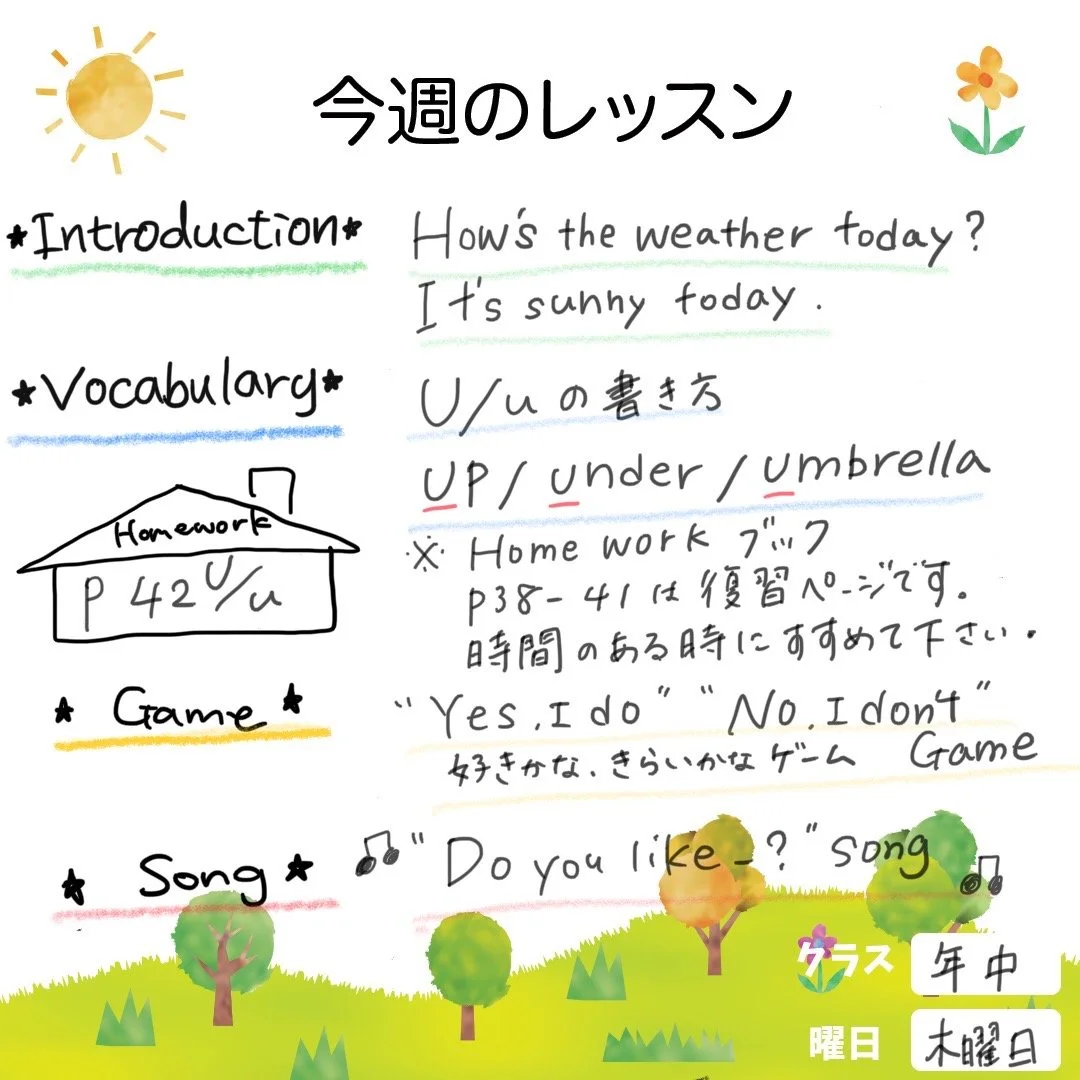 今週のレッスン
*Introduction*
How's the weather today?
It's sunny today.
*Vocabulary*
U/uの書き方
up/under/umbrella
Homework
P42 U/u
※ Home work ブック
P38-41は復習ページです。
時間のある時にすすめて下さい。
* Game *
"Yes, I do" "No, I don't"
好きかな、きらいかなゲーム Game
* Song *
♫ "Do you like_?" song ♫
クラス 年中
曜日 木曜日